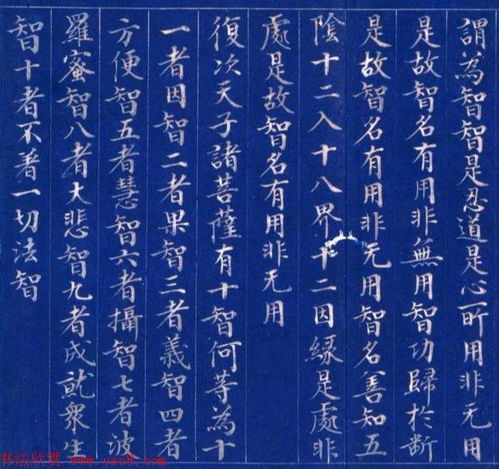 謂為智智是忍道是心所用非无用
是故智名有用非無用智功歸於断
是故智名有用非无用智名善知五
陰十二入十八界十二因縁是處非
處是故智名有用非无用
復次天子諸菩薩有十智何等為十
一者因智二者果智三者義智四者
方便智五者慧智六者攝智七者波
羅蜜智八者大悲智九者成就衆生
智十者不著一切法智
书法欣赏 www.yac8.com